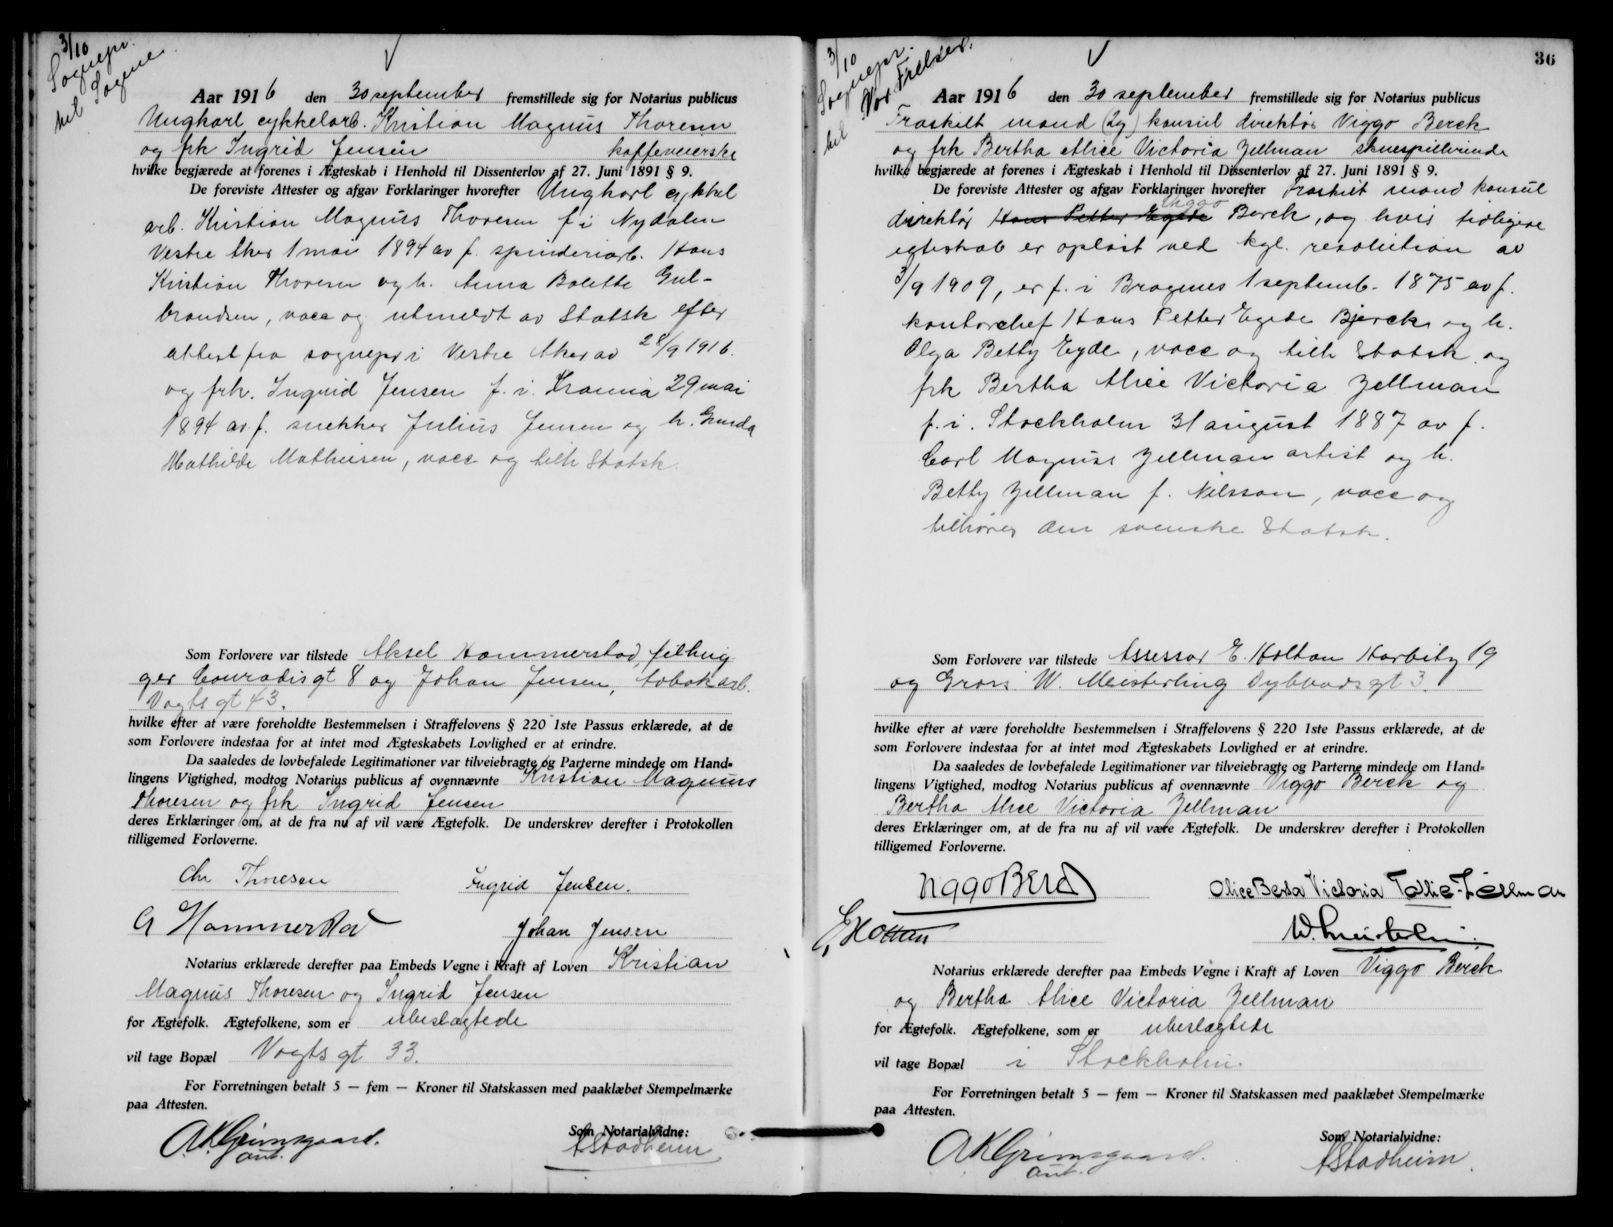 3/10
Sognepr.
til Sagene
Aar 1916 den 30 september fremstillede sig for Notarius publicus
Ungkarl cykkelarb. Kristian Magnus Thoresen
og frk Ingrid Jensen kaffeveierske
hvilke begjærede at forenes i Ægteskab i Henhold til Dissenterlov af 27. Juni 1891 § 9.
De foreviste Attester og afgav Forklaringer hvorefter Ungkarl cykkel
arb. Kristian Magnus Thoresen f i Nydalen
Vestre Aker 1 mai 1894 av f. spinderiarb. Hans
Kristian Thoresen og h. Anna Bolette Gul-
brandsen, vacc og utmeldt av Statsk efter
attest fra sognepr i Vestre Aker av 28/9 1916.
og frk. Ingrid Jensen f. i. Krania 29 mai
1894 av f. snekker Julius Jensen og h. Gunda
Mathilde Mathiesen, vacc og tilh Statsk.
Som Forlovere var tilstede Aksel Hammerstad, filhug
ger Conradisgt 8 og Johan Jensen, tobakarb.
Vogts gt 43.
hvilke efter at være foreholdte Bestemmelsen i Straffelovens § 220 1ste Passus erklærede, at de
som Forlovere indestaa for at intet mod Ægteskabets Lovlighed er at erindre.
Da saaledes de lovbefalede Legitimationer var tilveiebragte og Parterne mindede om Hand-
lingens Vigtighed, modtog Notarius publicus af ovennævnte Kristian Magnus
Thoresen og frk Ingrid Jensen
deres Erklæringer om, at de fra nu af vil være Ægtefolk. De underskrev derefter i Protokollen
tilligemed Forloverne.
Chr Thoresen Ingrid Jensen.
A Hammerstad Johan Jensen
Notarius erklærede derefter paa Embeds Vegne i Kraft af Loven Kristian
Magnus Thoresen og Ingrid Jensen
for Ægtefolk. Ægtefolkene, som er ubeslægtede
vil tage Bopæl Vogts gt 33.
For Forretningen betalt 5 — fem — Kroner til Statskassen med paaklæbet Stempelmærke
paa Attesten.
Som Notarialvidne:
A.K.Grimsgaard. AStadheim
aut.
36
3/10
Sognepr.
til Vor Frelser.
Aar 1916 den 30 september fremstillede sig for Notarius publicus
Fraskilt mand (2g) konsul direktør Viggo Berck
og frk Bertha Alice Victoria Zellman skuespillerinde
hvilke begjærede at forenes i Ægteskab i Henhold til Dissenterlov af 27. Juni 1891 § 9.
De foreviste Attester og afgav Forklaringer hvorefter Fraskilt mand konsul
Viggo
direktør Hans Petter Egede Berck, og hvis tidligere
egteskab er opløst ved kgl. resolution av
3/9 1909, er f. i Bragnes 1 septemb. 1875 av f.
kontorchef Hans Petter Egede Bjerck og h.
Olga Betty Eyde, vacc og tilh Statsk. og
frk Bertha Alice Victoria Zellman
f. i. Stockholm 31 august 1887 av f.
Carl Magnus Zellman artist og h.
Betty Zellman f. Nilsson, vacc og
tilhører den svenske Statsk.
Som Forlovere var tilstede Assessor E. Holtan Harbitz 19
og W. Meisterling Dybvadsgt 3.
hvilke efter at være foreholdte Bestemmelsen i Straffelovens § 220 1ste Passus erklærede, at de
som Forlovere indestaa for at intet mod Ægteskabets Lovlighed er at erindre.
Da saaledes de lovbefalede Legitimationer var tilveiebragte og Parterne mindede om Hand-
lingens Vigtighed, modtog Notarius publicus af ovennævnte Viggo Berck og
Bertha Alice Victoria Zellman
deres Erklæringer om, at de fra nu af vil være Ægtefolk. De underskrev derefter i Protokollen
tilligemed Forloverne.
Viggo Berck Alice Berta Victoria Tollie-Zellman
E. Holtan
Notarius erklærede derefter paa Embeds Vegne i Kraft af Loven Viggo Berck
og Bertha Alice Victoria Zellman
for Ægtefolk. Ægtefolkene, som er ubeslægtede
vil tage Bopæl i Stockholm.
For Forretningen betalt 5 — fem — Kroner til Statskassen med paaklæbet Stempelmærke
paa Attesten.
Som Notarialvidne:
A.K.Grimsgaard. AStadheim
aut.